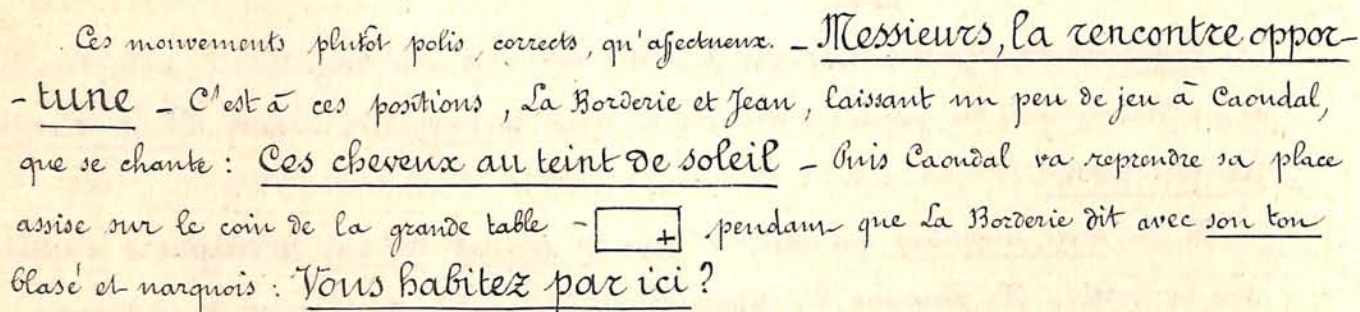 Ces mouvements plutôt polis, corrects, qu'affectueux. – Messieurs, la rencontre oppor-
-tune – C'est à ces positions, La Borderie et Jean, laissant un peu de jeu à Caoudal,
que se chante : Ces cheveux au teint de soleil – Puis Caoudal va reprendre sa place
assise sur le coin de la grande table – + pendant que La Borderie dit avec son ton
blasé et narquois : Vous habitez par ici ?